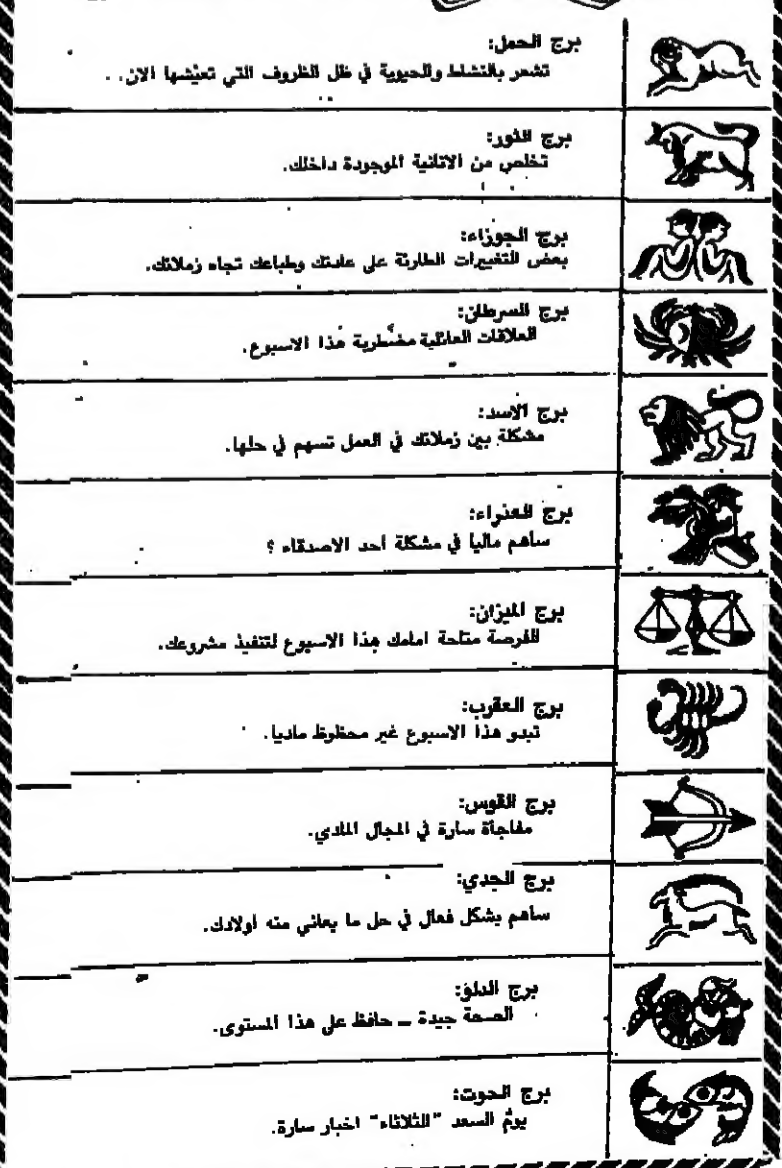 برج الحمل:
تشعر بالنشاط والحيوية في ظل الظروف التي تعيشها الان. .
برج الثور:
تخلص من الانانية الموجودة داخلك.
برج الجوزاء:
بعض التغييرات الطارئة على عادتك وطباعك تجاه زملائك.
برج السرطان:
العلاقات العائلية مضطربة هذا الاسبوع.
برج الاسد:
مشكلة بين زملائك في العمل تسهم في حلها.
برج العذراء:
ساهم ماليا في مشكلة أحد الاصدقاء ؟
برج الميزان:
الفرصة متاحة امامك هذا الاسبوع لتنفيذ مشروعك.
برج العقرب:
تبدو هذا الاسبوع غير محظوظ ماديا.
برج القوس:
مفاجأة سارة في المجال المادي.
برج الجدي:
ساهم بشكل فعال في حل ما يعاني منه أولادك.
برج الدلو:
الصحة جيدة ــ حافظ على هذا المستوى.
برج الحوت:
يوم السعد "الثلاثاء" اخبار سارة.